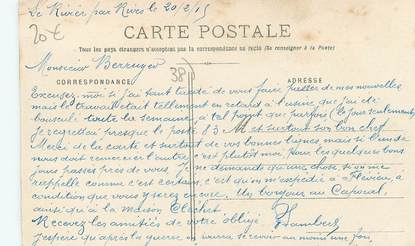 Le Rivier par Rives le 20/2/15
20€
CARTE POSTALE
Tous les pays étrangers n'acceptent pas la correspondance au recto (Se renseigner à la Poste)
Monsieur Berruyer
38
CORRESPONDANCE
ADRESSE
Excusez-moi si j'ai tant tardé de vous faire passer de mes nouvelles
mais le travail était tellement en retard à l'usine que j'ai été
bousculé toute la semaine, à tel point que parfois (le jour seulement)
je regrettai presque le poste 83. Et surtout son bon chef
Merci de la carte et surtout de vos bonnes lignes mais si l'un de
nous doit remercier l'autre, c'est plutôt moi pour les quelques bons
jours passés près de vous. Je me demande qu'une chose,
rappelle comme c'est certain, c'est qu'on m'expédie à Flévieu, à
condition que vous y serez encore. Un bonjour au Caporal,
ainsi qu'à la maison Clechet
Recevez les amitiés de votre obligé
J'espère qu'après la guerre on pourra se revoir au moins une fois,